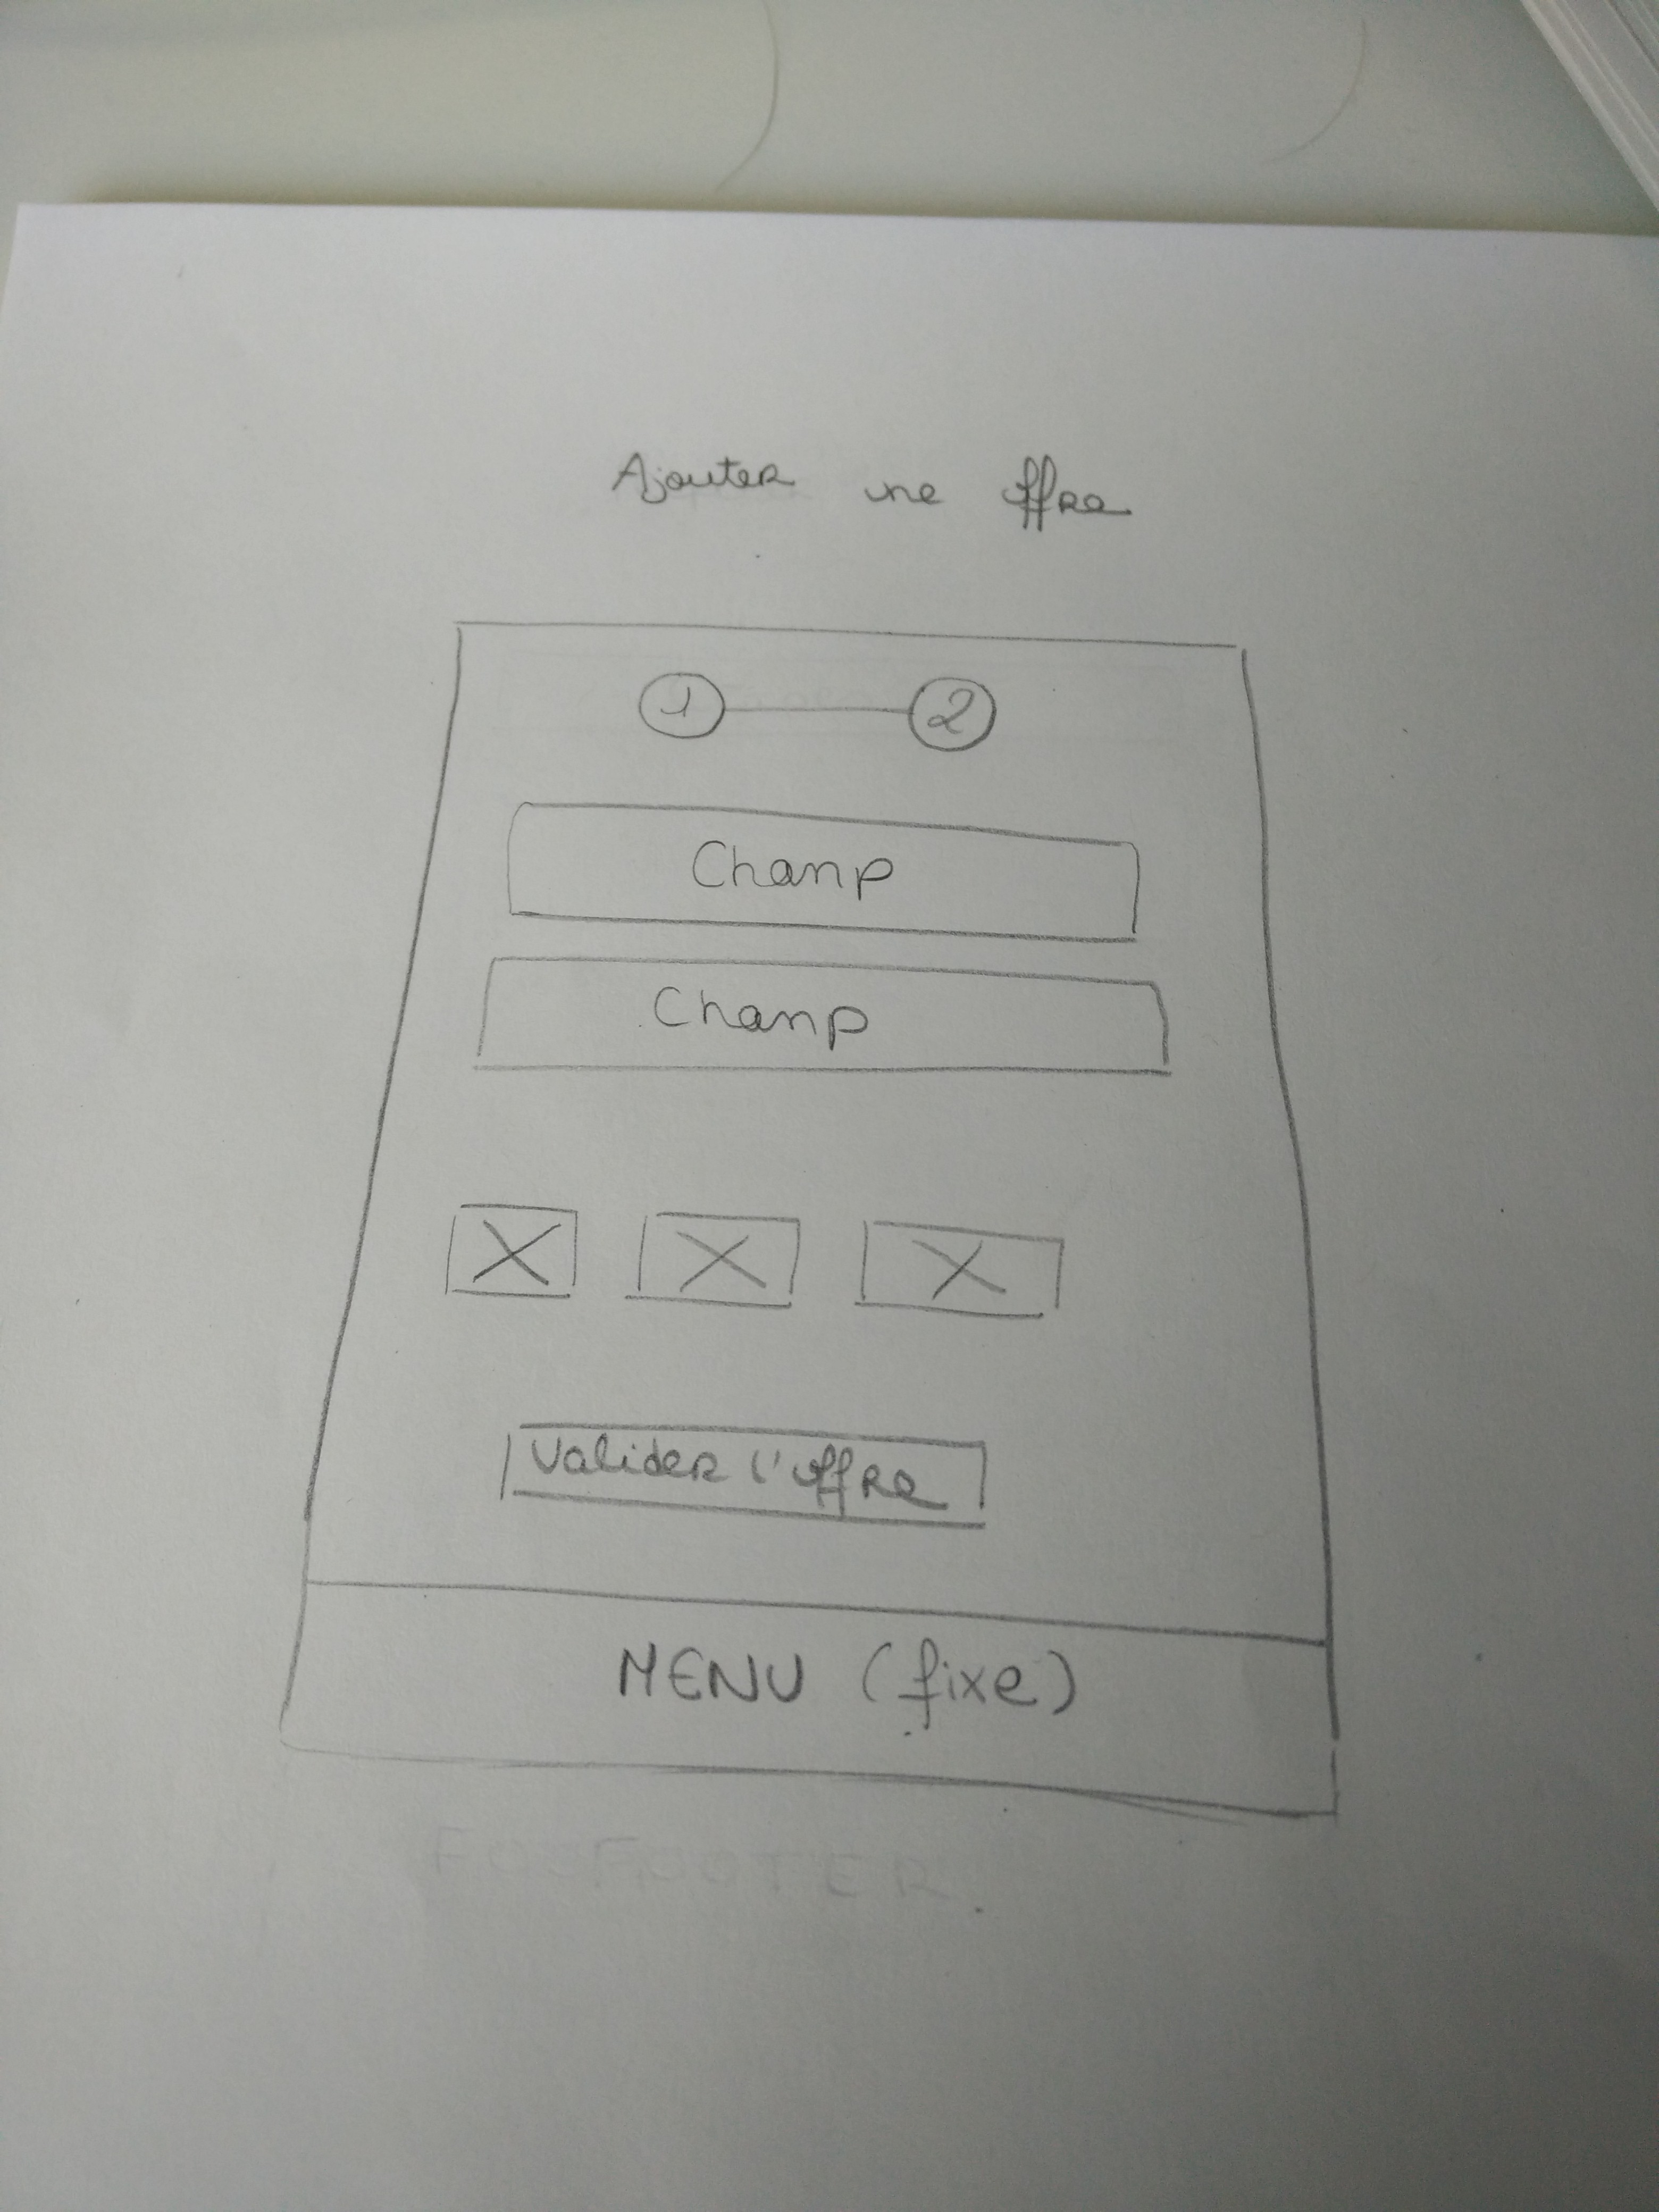 Ajouter une offre
1 2
Champ
Champ
X X X
Valider l'offre
MENU (fixe)
FOOTER